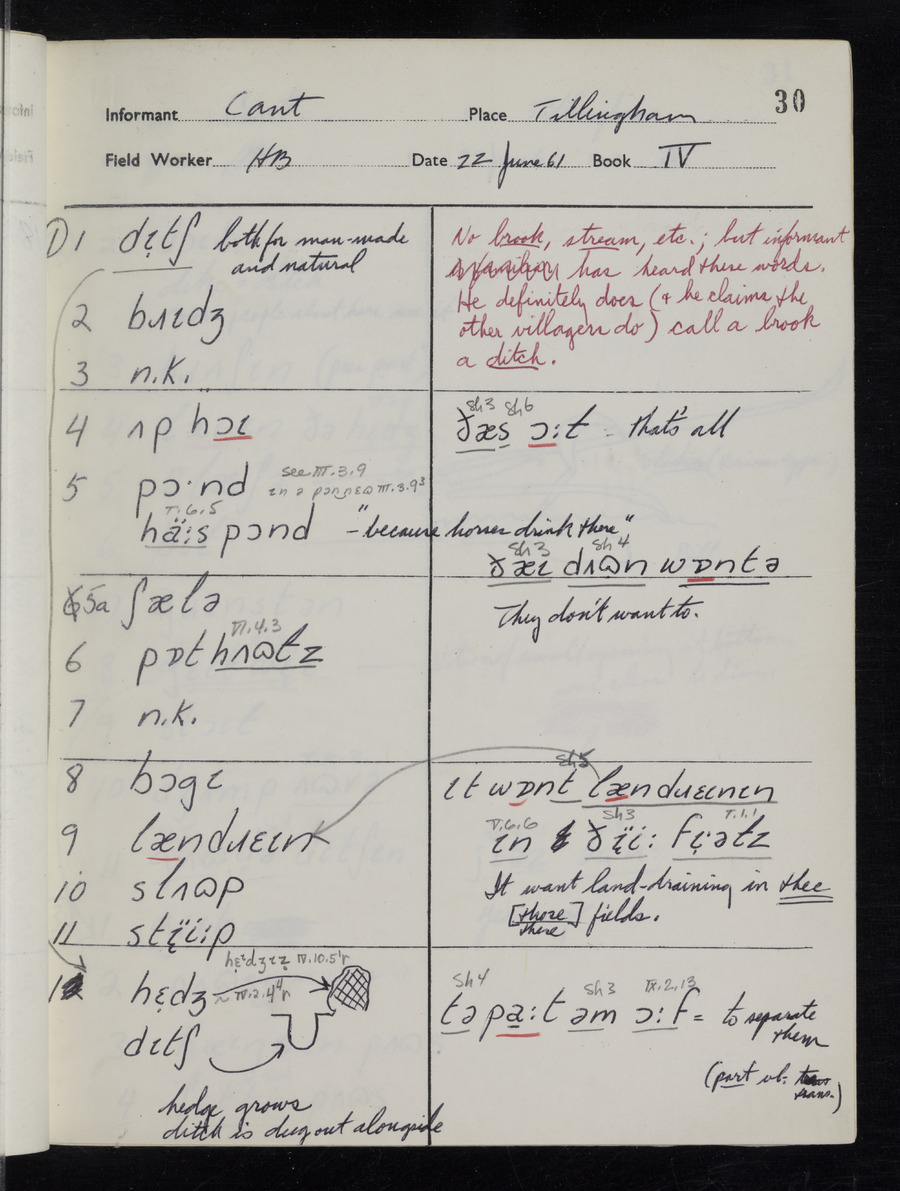 30
Informant Cant Place Tillingham
Field Worker HB Date 22 June 61 Book IV
D 1 dɪtʃ both for man-made
and natural
2 bɹɪdʒ
3 n.k.
4 ʌp hɔɪ
5 pɔ·nd see III.3.9
V.6.5
hä:s pɔnd – "because horses drink there"
5a ʃælə
VI.4.3
6 pɒthʌɷtz
7 n.k.
8 bɔgɪ
9 lændɹɛɪn
10 slʌɷp
11 stï̞i:p
12 hɛ̝dʒ IV.10.5'r
~ IV.2.4⁴r
dɪtʃ
hedge grows
ditch is dug out alongside
No brook, stream, etc.; but informant
has heard these words.
He definitely does (& he claims the
other villagers do) call a brook
a ditch.
Sh3 Sh6
ðæs ɔ:t – that's all
Sh3 Sh4
ðæɪ dʌɷn wɒntə
They don't want to.
Sh5
ɪt wɒnt lændɹɛɪnɪn
V.6.6 Sh3 I.1.1
ɪn ðï̞i: fi̞:ətz
It want land-draining in thee
[those] fields.
there
Sh4 Sh3 IX.2.13
təpa:t əm ɔ:f = to separate
them
(part vb. trans.)